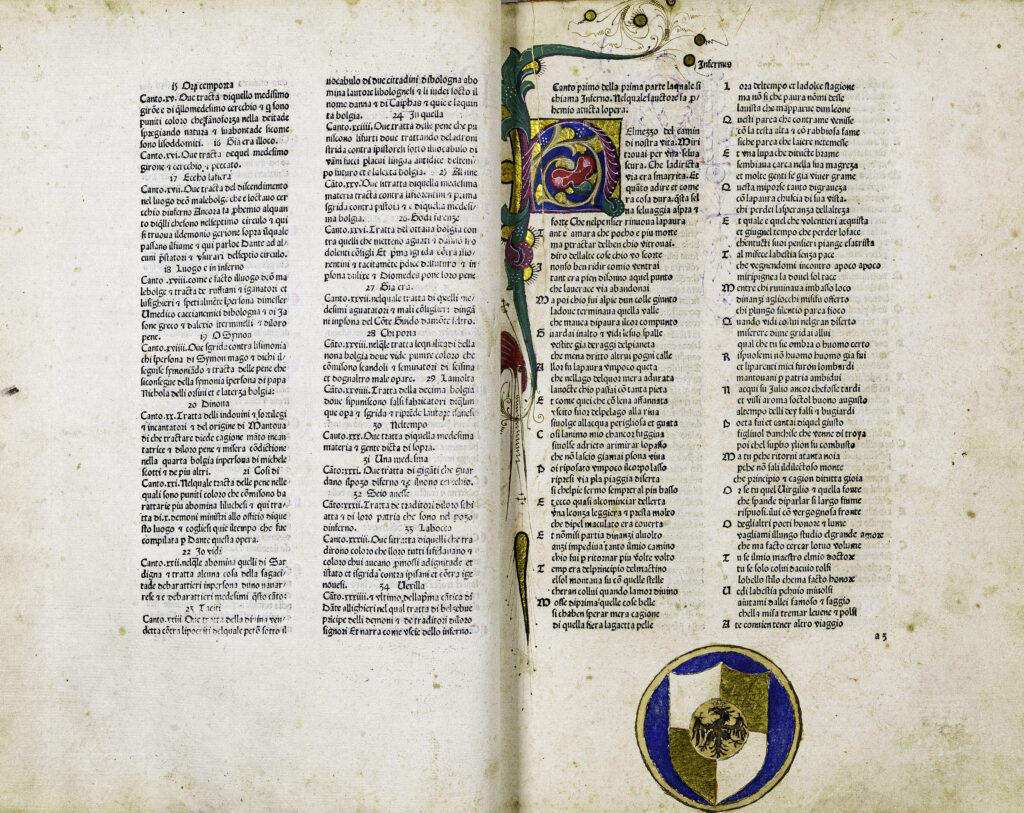 15 Ora cemporta
Canto.xv. Oue tracta diquello medesimo
girōe e di q̄llo medesimo cerchio ⁊ q̄ sono
puniti coloro che fanoforza nella deitade
spregiando natura ⁊ suabontade sicome
sono lisoddomiti. 16 Gia era illoco.
Canto.xvi. Oue tracta dequel medesimo
girone ⁊ cerchio ⁊ peccato.
17 Eccho lafiera
Canto.xvii. Oue tracta del discendimento
nel luogo dcō malebolge che e loctauo cer
chio dinferno Ancora fa ꝓhemio alquan
to diq̄lli chesono nelseptimo circulo ⁊ qui
si truoua ildemonio gerione sopra ilquale
passano ilfiume ⁊ qui parloe Dante ad al
cuni pistatori ⁊ vsurari delseptio circulo.
18 Luogo e in inferno
Canto.xviii.come e facto illuogo dcō ma
lebolge ⁊ tracta de ruffiani ⁊ iganatori et
lusighieri ⁊ spetialmēte ipersona dimesser
Umedico caccianemici dibologna ⁊ di Ja
sone greco ⁊ dalexio iterminelli ⁊ diloro
pene. 19 O Symon
Canto.xviiii.Oue sgrida contra lisimonia
chi ipersona di Symon mago ⁊ dichi il
seguie symoniādo ⁊ tracta delle pene che
siconsegue della symonia ipersona di papa
Nichola delli orsini et e laterza bolgia.
20 Dinoua
Canto.xx.Tratta delli indouini ⁊ sortilegi
⁊ incantatori ⁊ del origine di Mantoua
di che tractare diede cagione māto incan
tatrice ⁊ diloro pene ⁊ misera cōdictione
nella quarta bolgia inpersona di michele
scotti ⁊ de piu altri. 21 Cosi di
Canto.xxi.Nelquale tracta delle pene nelle
quali sono puniti coloro che cōmisono ba
rattarie piu abomina liluchesi ⁊ qui tra
cta di.x.demoni ministri allo offitio dique
sto luogo ⁊ cogliesi quie iltempo che fue
compilata p Dante questa opera.
22 Jo vidi
Canto.xxii.nelq̄le abomina quelli di Sar
digna ⁊ tratta alcuna cosa della sagaci
tade debarattieri inpersona duno nauar
rese ⁊ e debarattieri medesimi q̄sto cāto:
23 Taciti
Canto.xxiii.Oue tratta della diuina ven⸗
detta cōtra lipocriti delquale petō sotto il
uocabulo di due cittadini dibologna abo
mina lautore libolognesi ⁊ li iudei sotto il
nome danna ⁊ di Caiphas ⁊ quie e laquin
ta bolgia. 24 In quella
Canto.xxiiii.Oue tratta delle pene che pu
niscono lifurti doue trattando deladroni
strida contra ipistoresi sotto iluocabulo di
vāni fucci placui lingua antidice deltem⸗
po futuro et e laseta bolgia. 25 Al fine
Cāto.xxv.Oue sitratta diquella medesima
materia tracta contra lifiorentini ⁊ prima
sgrida contra pistoia ⁊ e diquella medesi⸗
ma bolgia. 26 Godi firenze
Canto.xxvi.Tratta del ottaua bolgia con
tra quelli che metteno aguati ⁊ danno fro
dolenti cōsigli Et p̄ma sgrida cōtra ifio⸗
rentini ⁊ tacitamēte pdice delfuturo ⁊ in p
sona dulixe ⁊ Diomedea pone loro pene
27 Gia era.
Canto.xxvii.nelquale tratta di quelli me⸗
desimi aguatatori ⁊ mali cōsiglieri⸗dingā
ni inpsona del Cōte Guido damōte feltro.
28 Chi poria
Canto.xxviii.nelq̄le tratta lequalitadi della
nona bolgia doue vide punire coloro che
cōmisono scandoli ⁊ seminatori di scisma
et dognaltro male opare. 29 Lamolta
Canto.xxviiii.Tratta della decima bolgia
doue sipuniscono falsi fabricatori diq̄lun⸗
que opa ⁊ sgrida ⁊ ripēde lautore isanesi
30 Neltempo
Canto.xxx.Oue tratta diquella medesima
materia ⁊ gente dicta di sopra.
31 Una med.sima
Cāto.xxxi.Oue tratta di gigāti che guar
dano ilpozo diferno ⁊ e ilnono cerchio.
32 Seio auesse
Cāto.xxxii.Tratta de traditori diloro schi
atta ⁊ di loro patria che sono nel pozo
dinferno. 33 Labocca
Canto.xxxiii.Oue sitratta diquelli che tra
dirono coloro che illoro tutti sifidauano ⁊
coloro chui aueano pmossi adignitade et
istato et isgrida cōtra ipisani et cōtra ige
nouesi. 34 Uexilla
Canto.xxxiiii.⁊ vltimo dellap̄ma cātica di
Dante allighieri nel qual tratta di belzebue
pricipe delli demoni ⁊ de traditori diloro
signori Et narra come vscie dello inferno.
Infernus
Canto primo della prima parte laquale si
chiama Inferno. Nelquale lauctore fa p
hemio atucta lopera.
Elmezzo del camin
di nostra vita. Miri
trouai per vna selua
scura. Che ladiricta
via era smarrita. Et
quāto adire et come
ra cosa dura. q̄sta sel
na seluaggia aspra ⁊
forte Che nelpensier rinuoua lapaura
Tant e amara che pocho e piu morte
ma ptractar delben chio vitrouai.
diro dellalte cose chio vo scorte
Jo nonso ben ridir comio ventrai
tant era pien disonno aquel punto
che lauerace via abandonai
Ma poi chio fui alpie dun colle giunto
ladoue terminaua quella valle
che mauea dipaura ilcor compunto
Guardai inalto ⁊ vidi lesue spalle
vestite gia deraggi delpianeta
che mena dritto altrui pogni calle
Allor fu lapaura vmpoco queta
che nellago delquor mera adurata
lanocte chio passai cō tanta pieta
Et come quei che cō lena affannata
vscito fuor delpelago alla riua
siuolge allacqua perigliosa et guata
Cosi lanimo mio chancor fuggiua
siuolse adrieto armirar lopasso
che nō lascio giamai psona viua
Poi riposato vmpoco ilcorpo lasso
ripresi via pla piaggia diserta
si chelpie fermo sempreral piu basso
Et ecco quasi alcominciar dellerta
vna leonza leggiera ⁊ presta molto
che dipel maculato era couerta
Et nōmisi partia dinanzi aluolto
anzi impediua tanto ilmio camino
chio fui p ritornar piu volte volto
Temp era delprincipio delmactino
elsol montaua su cō quelle stelle
cheran collui quando lamor diuino
Mosse diprima quelle cose belle
si chaben sperar mera cagione
di quella fiera lagaetta pelle
Lora deltempo et ladolce stagione
ma nō si che paura nōmi desse
lauista che mapparue dun leone
Questi parea che contrame venisse
cō la testa alta ⁊ cō rabbiosa fame
siche parea che laiere netemesse
Et vna lupa che dituete brame
sembiaua carca nella sua magreza
et molte genti se gia viuer grame
Questa miporse tanto digraueza
cō lapaura chuscia di sua vista.
chi perdei lasperanza dellalteza
Et quale e quel che volentieri acquista
et giungiel tempo che perder loface
chentucti suoi pensieri piange ⁊ satrista
Tal mifece labestia senza pace
che vegnendomi incontro apoco apoco
miripingea la douel sol tace
Mentre chi ruuinaua imbasso loco
dinanzi agliocchi mifu offerto
chi plungo silentio parea fioco
Quando vidi costui nelgran diserto
miserere dime gridai allui
qual che tu sie ombra o huomo certo
Rispuosemi nō huomo huomo gia fui
et liparenti miei furon lombardi
mantouani p patria ambidui
Nacqui su Julio ancor chefosse tardi
et vissi aroma soctol buono augusto
altempo delli dey falsi ⁊ bugiardi
Poeta fui et cantai diquel giusto
figliuol danchise che venne di troya
poi chel supbo ylion su combusto
Ma tu pche ritorni atanta noia
pche nō sali aldilectoso monte
che principio ⁊ cagion ditutta gioia
Or se tu quel Uirgilio ⁊ quella fonte
che spande diparlar si largo fiume
rispuosi. lui cō vergognosa fronte
O deglialtri poeti honore ⁊ lume
vagliami illungo studio elgrande amore
che ma facto cercar lotuo volume
Tu se ilmio maestro elmio doctor
tu se solo colui dacuio tolsi
lobello stilo chema facto honor
Uedi labestia pchuio miuolsi
aiutami dallei famoso ⁊ saggio
chella misa tremar leuene ⁊ polsi
A te conuien tener altro viaggio
a 3